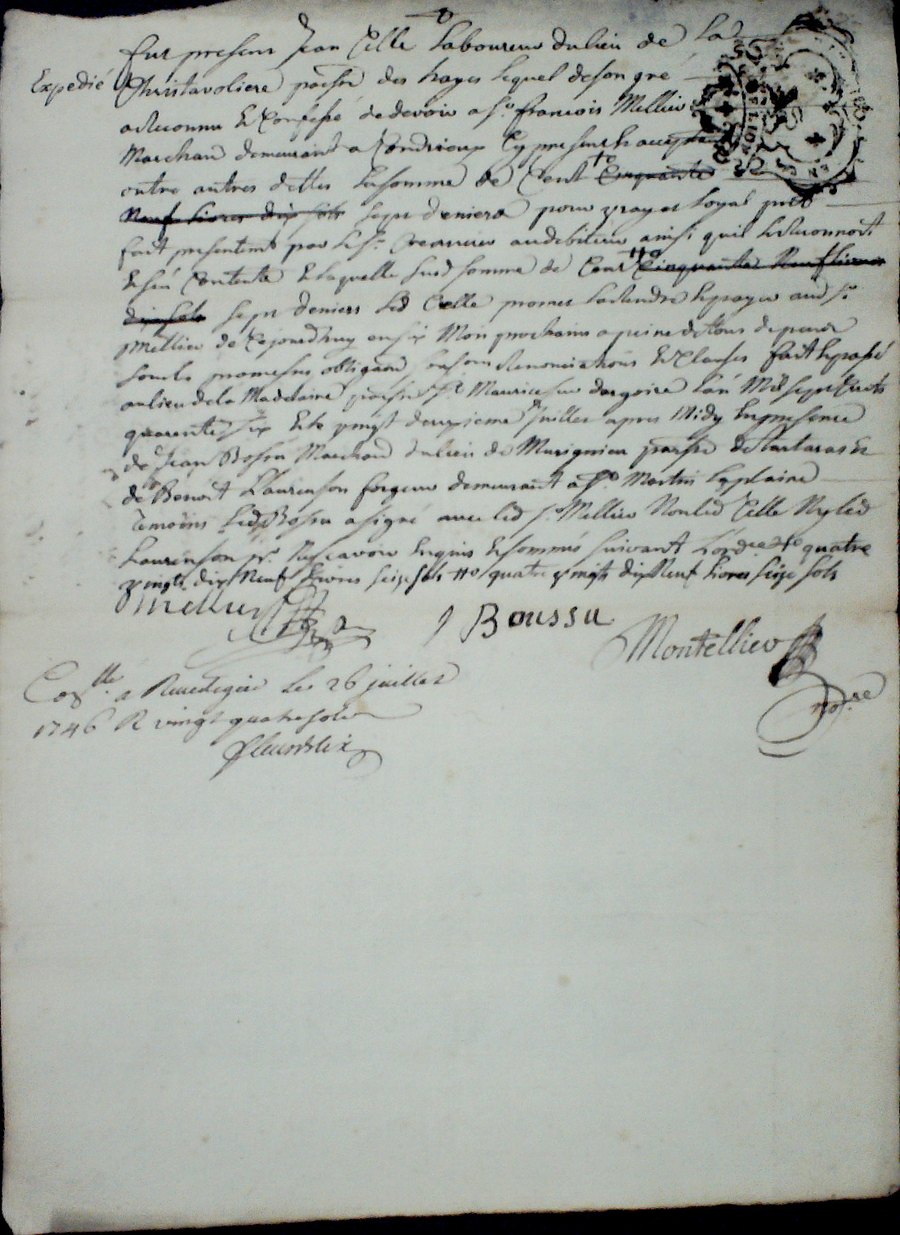 Fut present Jean Celle Laboureur du lieu de La
Expedié
Christavoliere parsse des hayes lequel de son gré
a Reconnu Et Confessé de devoir a Sr. francois Mellier
Marchan demeurant a Condrieux Cy present Et acceptant
outre autres dettes La somme de Cent Cinquante
Neuf Livres dix sols sept deniers pour vray et Loyal prêt
fait presentemt par led Sr. Creancier au debiteur ainsi quil Le Reconnoit
Et sen Contente Et laquelle susd somme de Cent Cinquante Neuf Livres
dix sols sept deniers Led Celle promet La Rendre Et payer aud Sr.
Mellier de Cejourdhuy en six Mois prochains a peine de tous depens
sous les promesses obligaõns Renonciations Et Clauses fait Et passé
au lieu de la Madelaine parsse St Maurice sur dargoire Lan Mil sept Cents
quarente six Et le vingt deuxieme Juillet apres Midy En presence
de Jean Bossu Marchand du lieu de Murigneu parsse de tartaras Et
de Benoit Laurenson forgeur demeurant a St Martin la plaine
temoins Led Bossu a signé avec led Sr Mellier Non led Celle Ny led
Laurenson pr. Ne scavoir Enquis Et sommés suivant Lordce # quatre
vingts dix Neuf Livres seize sols # quatre vingts dix Neuf Livres seize sols
Mellier
J Boussu
Montellier
notre
Conlle a Rivedegier Les 26 juillet
1746 R vingt quatre sols
fleurdelix